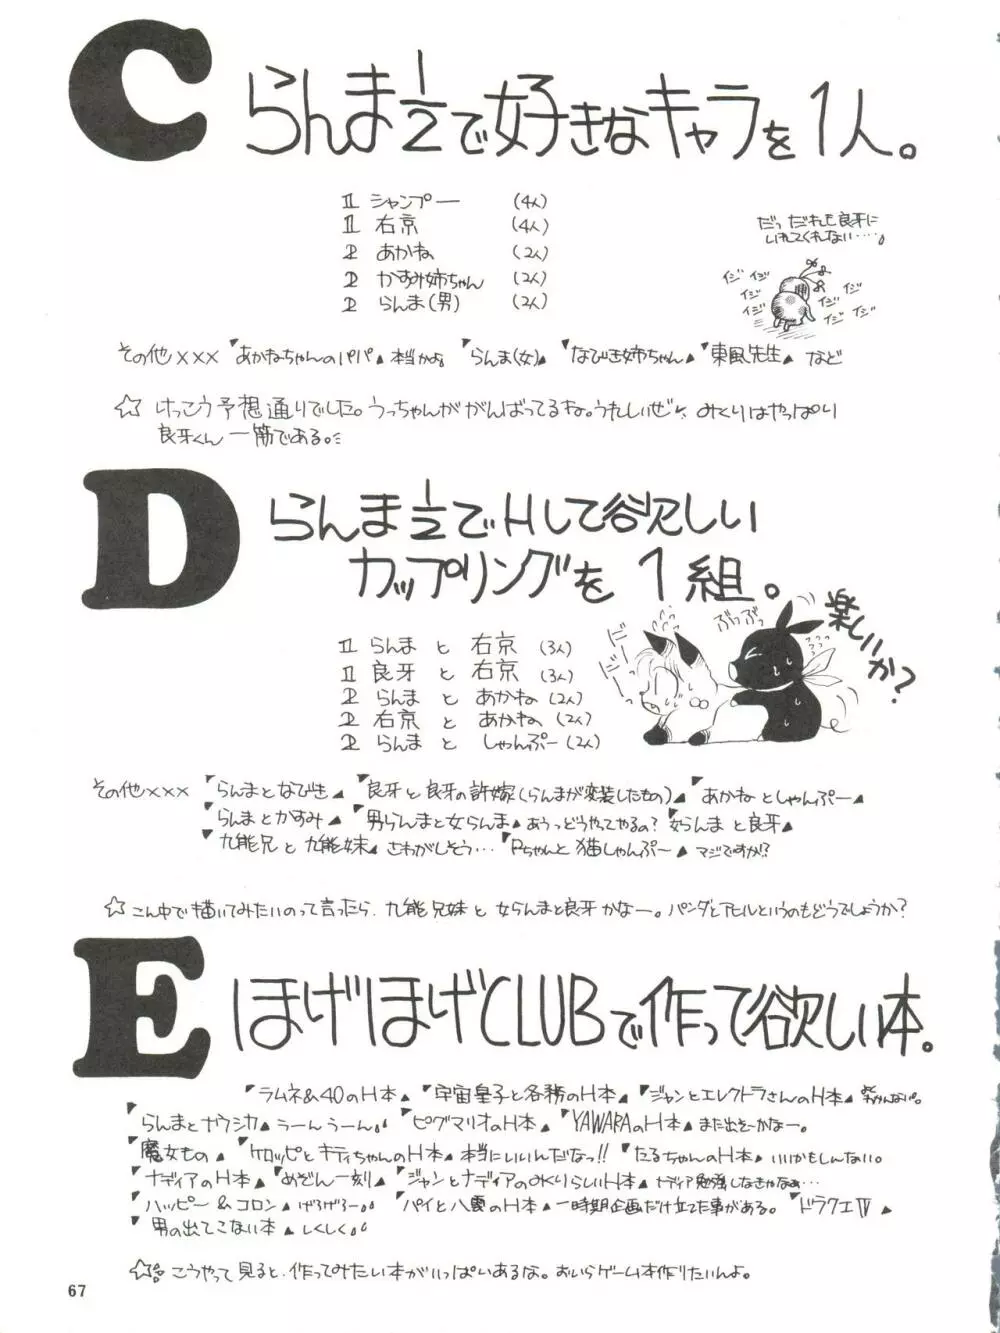 C
らんま1/2で好きなキャラを1人。
1 シャンプー (4人)
1 右京 (4人)
2 あかね (2人)
2 かすみ姉ちゃん (2人)
2 らんま(男) (2人)
だっ だれも良牙に
いれてくれない……
イジ イジ
イジ イジ
イジ イジ
イジ イジ
その他××× 「あかねちゃんのパパ」本当かよ 「らんま(女)」 「なびき姉ちゃん」 「東風先生」 など
☆ けっこう予想通りでした。うっちゃんががんばってるね。うれしいぜ みくりはやっぱり
良牙くん一筋である。
D
らんま1/2でHして欲しい
カップリングを1組。
1 らんま と 右京 (3人)
1 良牙 と 右京 (3人)
2 らんま と あかね (2人)
2 右京 と あかね (2人)
2 らんま と しゃんぷー (2人)
ぶっぶっ
楽しいか?
その他××× 「らんまとなびき」 「良牙と良牙の許嫁(らんまが変装したもの)」 「あかねとしゃんぷー」
「らんまとかすみ」 「男らんまと女らんま」あうっどうやってやるの? 女らんまと良牙」
「九能兄と九能妹」さわがしそう… 「Pちゃんと猫しゃんぷー」マジですか!?
☆ こん中で描いてみたいのって言ったら、九能兄妹と女らんまと良牙かなー。パンダとアヒルというのもどうでしょうか?
E
ほげほげCLUBで作って欲しい本。
「ラムネ&40のH本」 「宇宙皇子と各務のH本」 「ジャンとエレクトラさんのH本」
「らんまとナウシカ」うーんうーん 「ピグマリオのH本」 「YAWARAのH本」また出そーかなー。
「魔女もの」 「ケロッピとキティちゃんのH本」本当にいいんだなっ!! 「たるちゃんのH本」いいかもしんない。
「ナディアのH本」 「めぞん一刻」 「ジャンとナディアのみくりらしいH本」ナディア勉強しなきゃなぁ…
「ハッピー&コロン」げろげろー 「パイと八雲のH本」一時期企画だけ立てた事がある。 「ドラクエIV」
「男の出てこない本」しくしく
☆ こうやって見ると、作ってみたい本がいっぱいあるな。おいらゲーム本作りたいんよ。
67